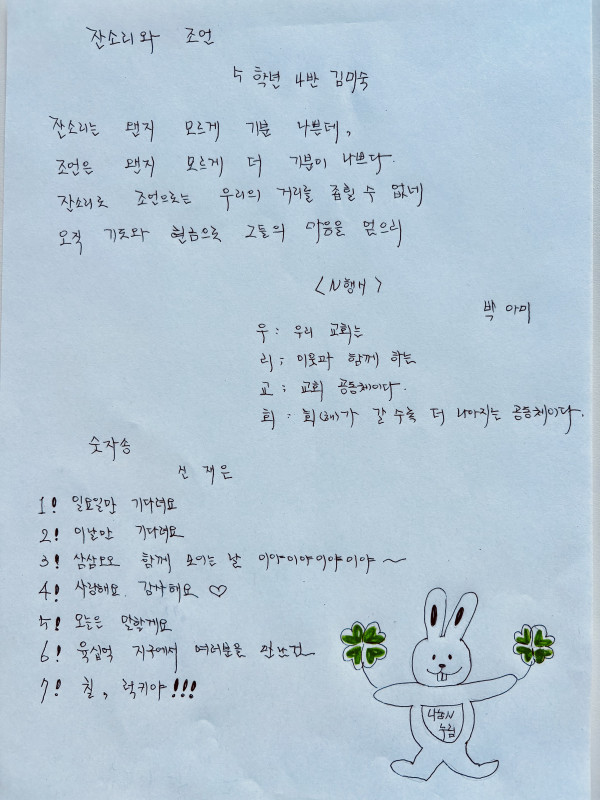 잔소리와 조언
5학년 4반 김미숙
잔소리는 왠지 모르게 기분 나쁜데,
조언은 왠지 모르게 더 기분이 나쁘다.
잔소리로 조언으로는 우리의 거리를 좁힐 수 없네
오직 기도와 헌금으로 그들의 마음을 얻으리
<N행시>
박 아미
우: 우리 교회는
리: 이웃과 함께 하는
교: 교회 공동체이다.
회: 회(해)가 갈 수록 더 나아지는 공동체이다.
숫자송
선 재은
1! 일요일만 기다려요
2! 이날만 기다려요
3! 삼삼오오 함께 모이는 날 이야이야이야이야~
4! 사랑해요 감사해요♡
5! 오늘은 말할게요
6! 육십억 지구에서 여러분을 만난건
7! 칠, 럭키야!!!
누림